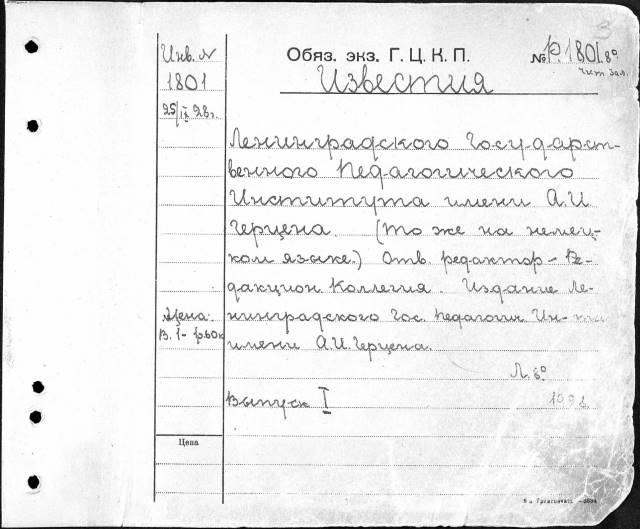 Инв. N
1801
25/IX 28 г.
Обяз. экз. Г. Ц. К. П.
№ Р. 1801. 8°
Чит. Зал.
3
Известия
Ленинградского Государст-
венного Педагогического
Института имени А.И
Герцена. (То же на немец-
ком языке.) Отв. редактор – Ре-
дакцион. Коллегия. Издание Ле-
нинградского Гос. Педагогич. Ин-
имени А.И. Герцена.
Цена:
В. 1 - 1р. 60к
Л. 8°
Выпуск I
1928
Цена